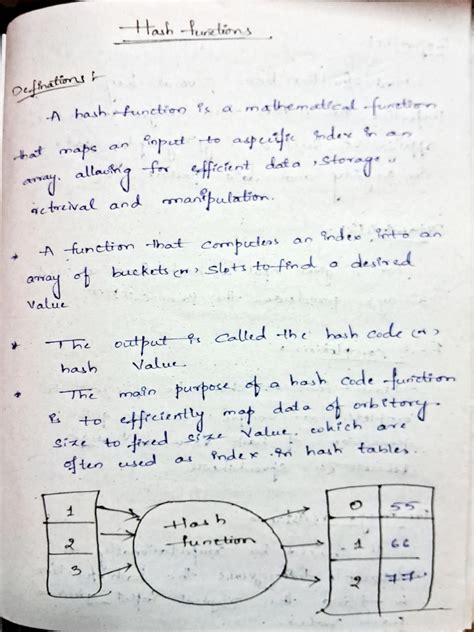 Hash functions
Definations :-
A hash function is a mathematical function
that maps an input to aspecific index in an
array. allowing for efficient data, storage,
retreival and manipulation.
* A function that computers an index, into an
array of buckets (or) slots to find a desired
value
* The output is called the hash code (or)
hash value.
* The main purpose of a hash code function
is to efficiently map data of orbitory
size to fixed size value. which are
often used as index in hash tables.
1
2
3
Hash
function
0 55
1 66
2 77